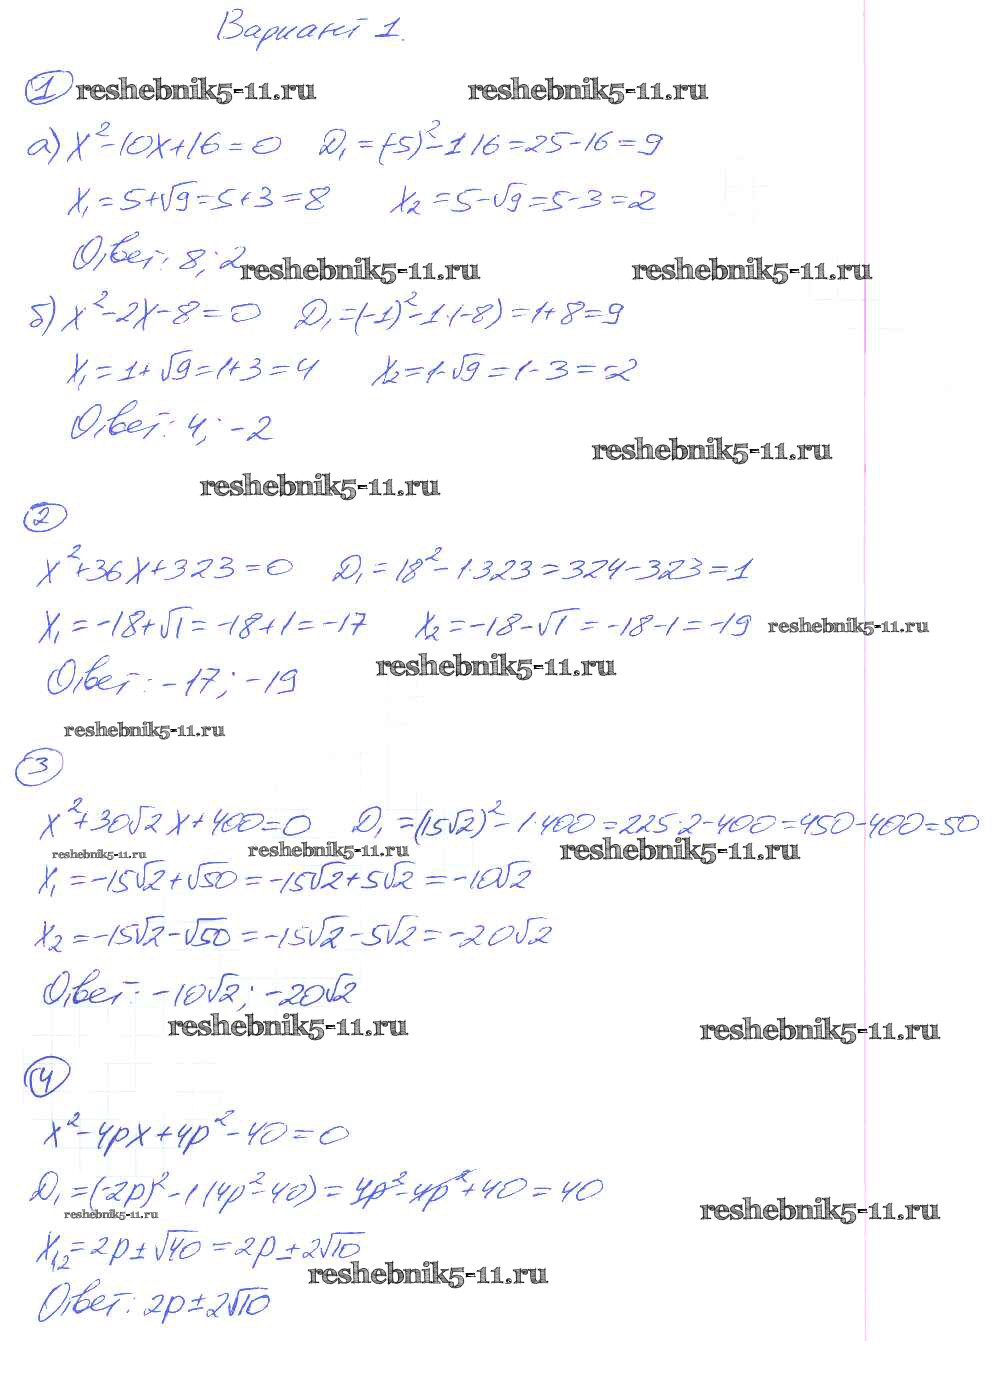 Вариант 1.
1 reshebnik5-11.ru reshebnik5-11.ru
а) x²-10x+16=0 D₁=(-5)²-1·16=25-16=9
x₁=5+√9=5+3=8 x₂=5-√9=5-3=2
Ответ: 8; 2
reshebnik5-11.ru reshebnik5-11.ru
б) x²-2x-8=0 D₁=(-1)²-1·(-8)=1+8=9
x₁=1+√9=1+3=4 x₂=1-√9=1-3=-2
Ответ: 4; -2
reshebnik5-11.ru
reshebnik5-11.ru
2
x²+36x+323=0 D₁=18²-1·323=324-323=1
x₁=-18+√1=-18+1=-17 x₂=-18-√1=-18-1=-19 reshebnik5-11.ru
Ответ: -17; -19 reshebnik5-11.ru
reshebnik5-11.ru
3
x²+30√2x+400=0 D₁=(15√2)²-1·400=225·2-400=450-400=50
reshebnik5-11.ru reshebnik5-11.ru reshebnik5-11.ru
x₁=-15√2+√50=-15√2+5√2=-10√2
x₂=-15√2-√50=-15√2-5√2=-20√2
Ответ: -10√2; -20√2
reshebnik5-11.ru reshebnik5-11.ru
4
x²-4px+4p²-40=0
D₁=(-2p)²-1(4p²-40)=4p²-4p²+40=40
reshebnik5-11.ru reshebnik5-11.ru
x₁,₂=2p±√40=2p±2√10
reshebnik5-11.ru
Ответ: 2p±2√10